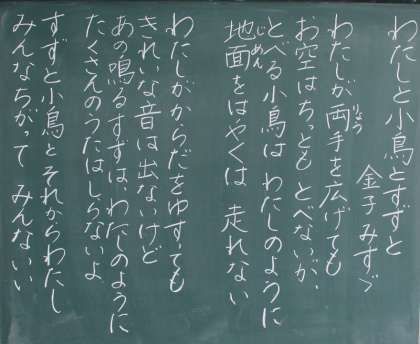 わたしと小鳥とすずと
金子みすゞ
わたしが両手を広げても
りょう
お空はちっともとべないが、
とべる小鳥は わたしのように
じめん
地面をはやくは 走れない
わたしがからだをゆすっても
きれいな音は出ないけど
あの鳴るすずは、わたしのように
たくさんのうたはしらないよ
すずと小鳥とそれからわたし
みんなちがって みんないい